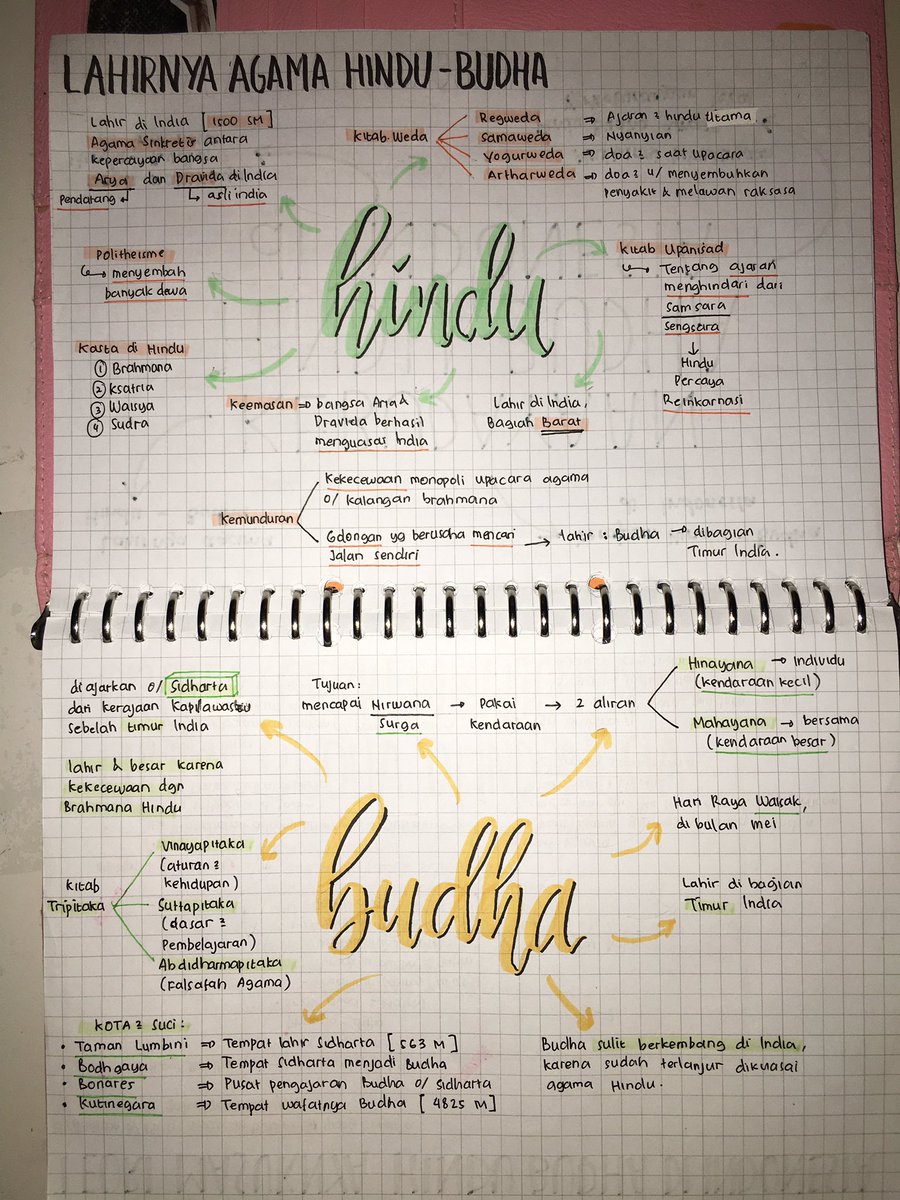 LAHIRNYA AGAMA HINDU-BUDHA
Lahir di India [1500 SM]
Agama Sinkretis antara
kepercayaan bangsa
Arya dan Dravida di India
Pendatang ↲ ↳ asli india
Kitab Weda
Regweda ⇒ Ajaran2 hindu utama.
Samaweda ⇒ Nyanyian
Yogurweda ⇒ doa2 saat upacara
Artharweda ⇒ doa2 u/ menyembuhkan
penyakit & melawan raksasa
hindu
Politheisme
↳ menyembah
banyak dewa
Kitab Upanisad
↳ Tentang ajaran
menghindari dari
Samsara
Sengsara
↓
Hindu
Percaya
Reinkarnasi
Kasta di Hindu
① Brahmana
② Ksatria
③ Waisya
④ Sudra
Keemasan ⇒ bangsa Aria &
Dravida berhasil
menguasai India
Lahir di India,
Bagian Barat
Kemunduran
Kekecewaan monopoli upacara agama
o/ kalangan brahmana
Golongan yg berusaha mencari
Jalan sendiri
→ lahir : Budha → dibagian
Timur India.
diajarkan o/ Sidharta
dari kerajaan Kapilawastu
sebelah timur India
Tujuan:
mencapai Nirwana
Surga
→ Pakai
kendaraan
→ 2 aliran
Hinayana → Individu
(kendaraan kecil)
Mahayana → bersama
(kendaraan besar)
lahir & besar karena
kekecewaan dgn
Brahmana Hindu
budha
Hari Raya Waisak,
di bulan mei
Lahir di bagian
Timur India
Kitab
Tripitaka
Vinayapitaka
(aturan2
kehidupan)
Suttapitaka
(dasar2
Pembelajaran)
Abdidharmapitaka
(Falsafah Agama)
KOTA2 Suci :
• Taman Lumbini ⇒ Tempat lahir Sidharta [563 M]
• Bodhgaya ⇒ Tempat Sidharta menjadi Budha
• Bonares ⇒ Pusat pengajaran Budha o/ Sidharta
• Kutinegara ⇒ Tempat wafatnya Budha [4825 M]
Budha sulit berkembang di India,
karena sudah terlanjur dikuasai
agama Hindu.